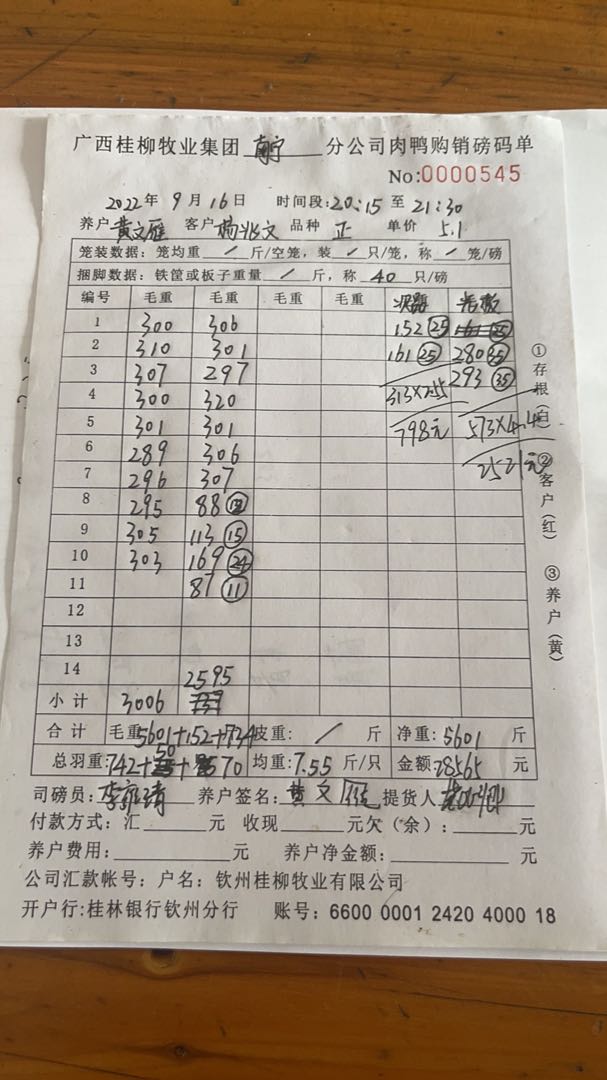 广西桂柳牧业集团 南宁 分公司肉鸭购销磅码单
No:0000545
2022年 9 月 16 日 时间段:20:15 至 21:30
养户 黄文雁 客户 杨兆文 品种 正 单价 5.1
笼装数据: 笼均重 / 斤/空笼, 装 / 只/笼, 称 / 笼/磅
捆脚数据: 铁筐或板子重量 / 斤, 称 40 只/磅
编号 毛重 毛重 毛重 毛重
1 300 306 152 (25) 161 (25)
2 310 301 161 (25) 280 (35)
3 307 297 293 (35)
4 300 320 313×2.55
5 301 301 798元 573×4.4
6 289 306 2521元
7 296 307
8 295 88 (12)
9 305 113 (15)
10 303 169 (24)
11 87 (11)
12
13
14 2595
小计 3006
合计 毛重:5601+152+734 皮重: / 斤 净重:5601 斤
总羽重:742+50+70 均重:7.55 斤/只 金额:28565 元
司磅员: 养户签名: 黄文 提货人
付款方式: 汇 元 收现 元 欠(余): 元
养户费用: 元 养户净金额: 元
公司汇款帐号: 户名: 钦州桂柳牧业有限公司
开户行:桂林银行钦州分行 账号: 6600 0001 2420 4000 18
①存根(白) ②客户(红) ③养户(黄)